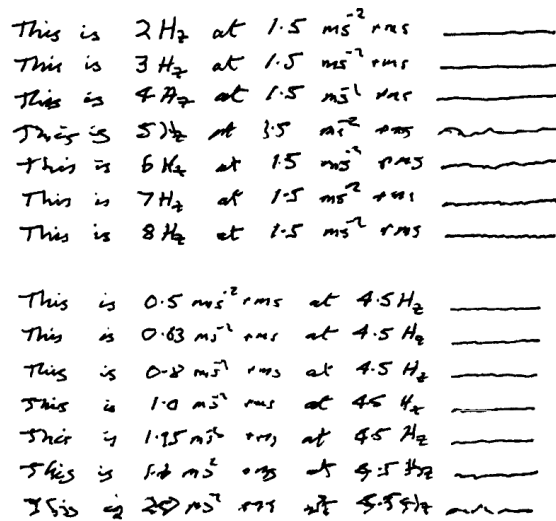 This is 2Hz at 1.5 ms⁻² rms
This is 3Hz at 1.5 ms⁻² rms
This is 4Hz at 1.5 ms⁻² rms
This is 5Hz at 1.5 ms⁻² rms
This is 6Hz at 1.5 ms⁻² rms
This is 7Hz at 1.5 ms⁻² rms
This is 8Hz at 1.5 ms⁻² rms
This is 0.5 ms⁻² rms at 4.5Hz
This is 0.63 ms⁻² rms at 4.5Hz
This is 0.8 ms⁻² rms at 4.5 Hz
This is 1.0 ms⁻² rms at 4.5 Hz
This is 1.25 ms⁻² rms at 4.5 Hz
This is ms⁻² rms at 4.5 Hz
This is ms⁻² rms at 4.5Hz